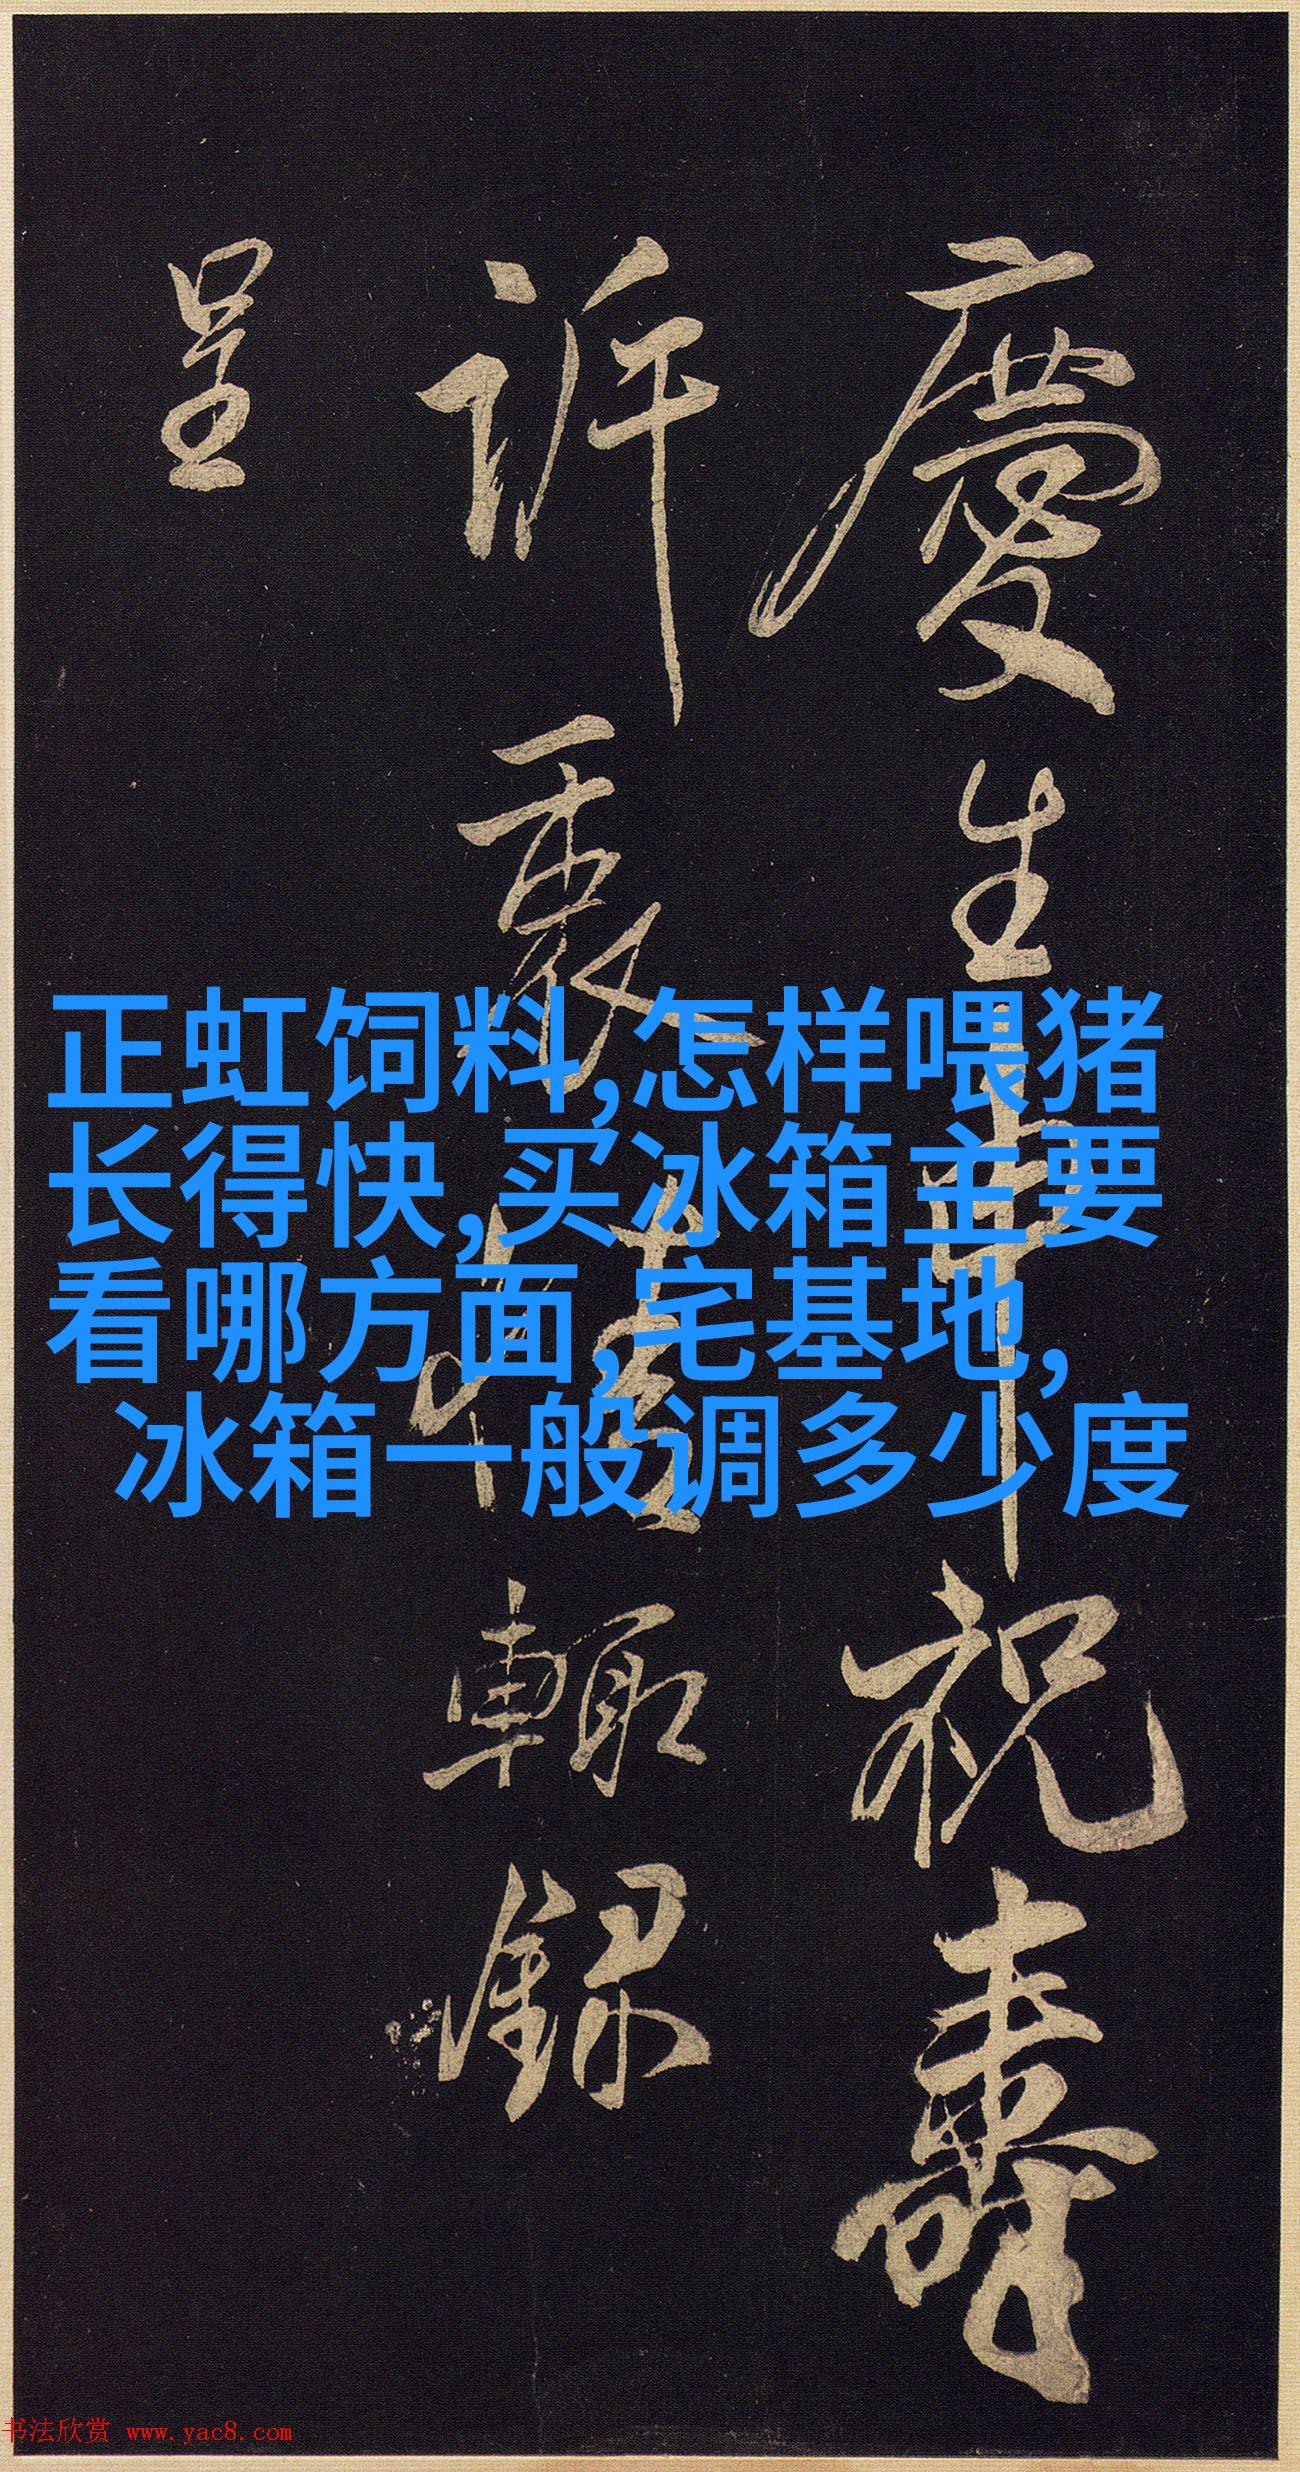 慶生申祝壽
訴衷情輙錄
呈
正虹饲料,怎样喂猪
长得快,买冰箱主要
看哪方面,宅基地,
冰箱一般调多少度
书法欣赏 www.yac8.com